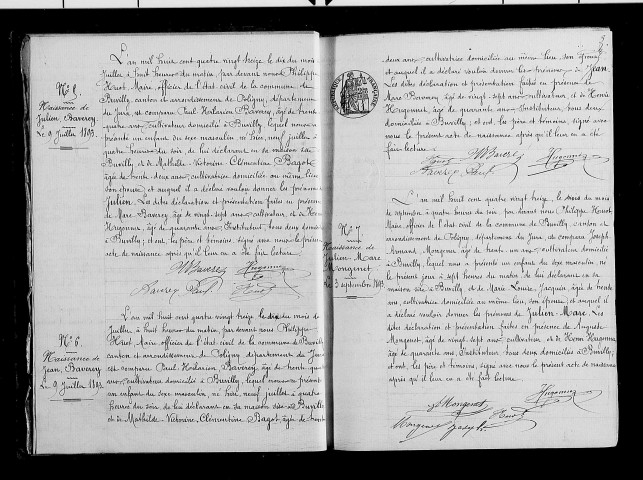 N° 5.
Naissance de
Julien, Baverey.
Le 9 Juillet 1893.
L'an mil huit cent quatre vingt treize le dix du mois
Juillet à huit heures du matin, par devant nous Philippe
Huot Maire officier de l'état civil de la commune de
Buvilly, canton et arrondissement de Poligny, département
du Jura, est comparu Paul Hodarien Baverey, âgé de trente
quatre ans, cultivateur domicilié à Buvilly lequel nous a
présenté un enfant du sexe masculin né hier, neuf juillet à
quatre heures du soir, de lui déclarant en sa maison sise
Buvilly et de Mathilde Victorine Clémentine Bagot,
âgée de trente deux ans, cultivatrice domiciliée au même lieu
son épouse, et auquel il a déclaré vouloir donner les prénoms de
Julien. Les dites déclaration et présentation faites en présence
de Marc Baverey âgé de vingt sept ans cultivateur, et de Henri
Hugonnet, âgé de quarante ans Instituteur, tous deux domiciliés
à Buvilly; et ont, les père et témoins, signé avec nous le présent
acte de naissance après qu'il leur en a été fait lecture.
M Baverey Hugonnet
Baverey Paul Huot
N° 6.
Naissance de
Jean, Baverey
Le 9 Juillet 1893
L'an mil huit cent quatre vingt treize, le dix du mois
Juillet, à huit heures du matin, par devant nous Philippe
Huot Maire officier de l'état civil de la commune de Buvilly
canton et arrondissement de Poligny département du Jura
est comparu Paul, Hodarien, Baverey, âgé de trente quatre
ans, cultivateur domicilié à Buvilly, lequel nous a présenté
un enfant du sexe masculin, né hier, neuf juillet, à quatre
heures du soir de lui déclarant en sa maison sise à Buvilly
et de Mathilde-Victorine, Clémentine Bagot, âgée de trente
deux ans, cultivatrice domiciliée au même lieu, son épouse
et auquel il a déclaré vouloir donner les prénoms de Jean
Les dites déclaration et présentation faites en présence de
Marc Baverey, âgé de vingt-sept ans, cultivateur, et de Henri
Hugonnet, âgé de quarante ans, Instituteur, tous deux
domiciliés à Buvilly; et ont, les père et témoins, signé avec
nous le présent acte de naissance, après qu'il leur en a été
fait lecture.
Huot M Baverey Hugonnet
Baverey Paul
N° 7
Naissance de
Julien-Marc
Mongenet
Le 3 septembre 1893.
L'an mil huit cent quatre vingt treize, le trois du mois
de septembre à quatre heures du soir, par devant nous Philippe Huot
Maire officier de l'état civil de la commune de Buvilly, canton et
arrondissement de Poligny, département du Jura, comparu Joseph
Armand, Mongenet, âgé de trente un ans cultivateur domicilié
à Buvilly, lequel nous a présenté un enfant du sexe masculin, né
le présent jour à sept heures du matin, de lui déclarant, en sa
maison sise à Buvilly et de Marie Louise, Jacquin, âgée de trente
ans, cultivatrice domiciliée au même lieu, son épouse, et auquel il a
déclaré vouloir donner les prénoms de Julien-Marc. Les
dites déclaration et présentation faites en présence de Auguste
Mongenet, âgé de vingt sept ans, cultivateur, et de Henri Hugonnet
âgé de quarante ans, Instituteur, tous deux domiciliés à Buvilly;
et ont, les père et témoins, signé avec nous le présent acte de naissance
après qu'il leur en a été fait lecture.
Mongenet Hugonnet
Mongenet Joseph Huot